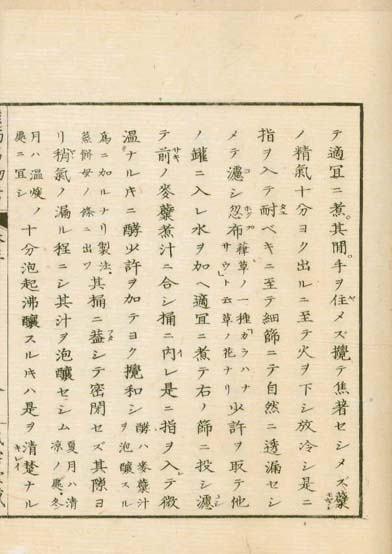 テ適冝ニ煮。其間。手ヲ住メズ攪テ焦著セシメズ。糵
ノ精氣十分ヨク出ルニ至テ火ヲ下シ放冷シ是ニ
指ヲ入テ耐ベキニ至テ細篩ニテ自然ニ透漏セシ
メテ濾シ忽布葎草ノ一種カラハナサウト云草ノ花ナリ少許ヲ取テ他
ノ鑵ニ入レ水ヲ加ヘ適冝ニ煮テ右ノ篩ニ投シ濾
テ前ノ麥糵煮汁ニ合シ桶ニ內レ是ニ指ヲ入テ微
温ナルキニ酵少許ヲ加テヨク攪和シ酵ハ麥糵汁ヲ泡釀スル
爲ニ加ルナリ製法。蒸餅母ノ條ニ出ツ其桶ニ蓋シテ密閉セズ其隙ヨ
リ稍氣ノ漏ル程ニシ其汁ヲ泡釀セシム夏月ハ清凉ノ處。冬
月ハ温煖ノ處ニ宜シ十分泡起沸釀スルキハ是ヲ清楚ナル